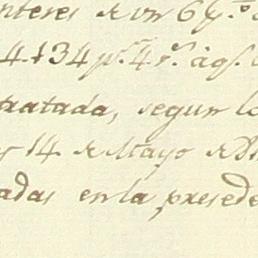 nteres de un 6 p.º
4.134 p.s 4 r.s
tratada, segun lo
14 de Mayo de
adas en la presede